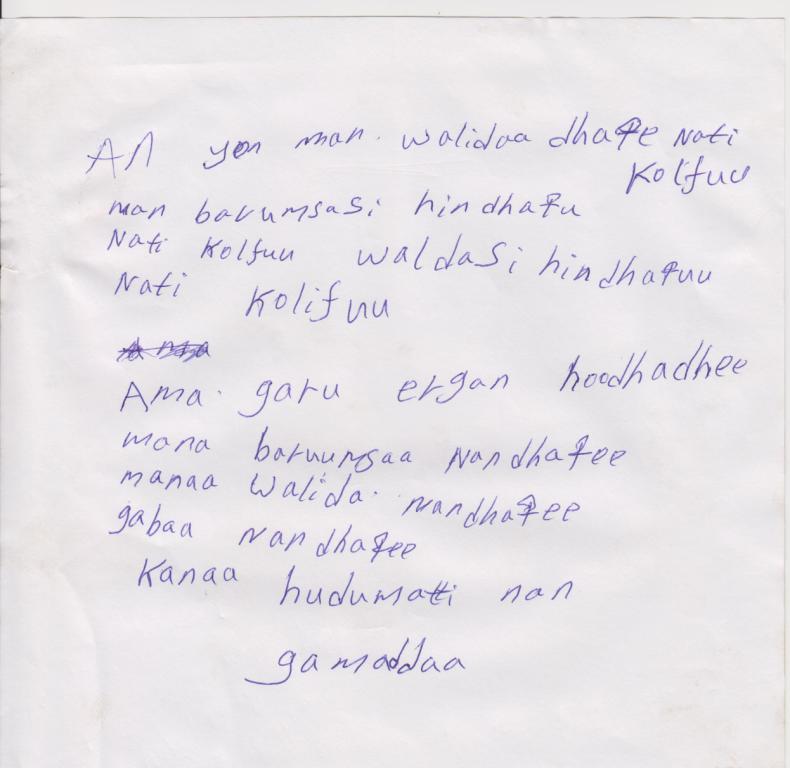 An yon man. walidaa dhaqe Nati
Kolfuu
man barumsasi hindhaqu
Nati Kolfuu waldasi hindhaquu
Nati Kolifuu
Ama. garu ergan hoodhadhee
mana baruumsaa Nandhaqee
manaa walida. Nandhaqee
gabaa Nandhaqee
Kanaa hudumatti nan
gamaddaa